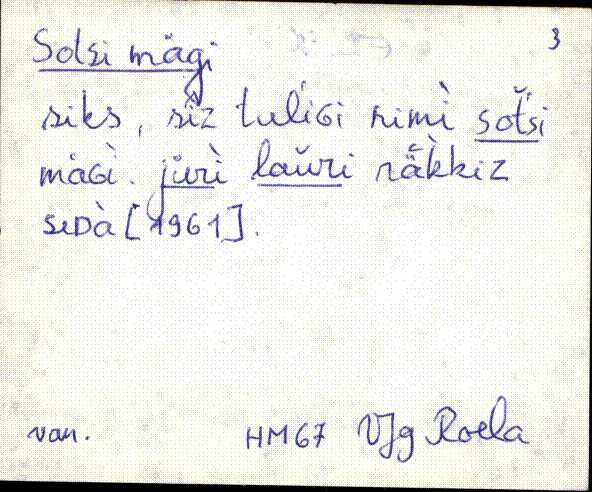 3
Sotsi mägi
siks, siz tuĺiGi nimì sot̆si
mäGì. jürì laŭri rä̆kkiz
seDà [1961].
van. HM67 VJg Roela